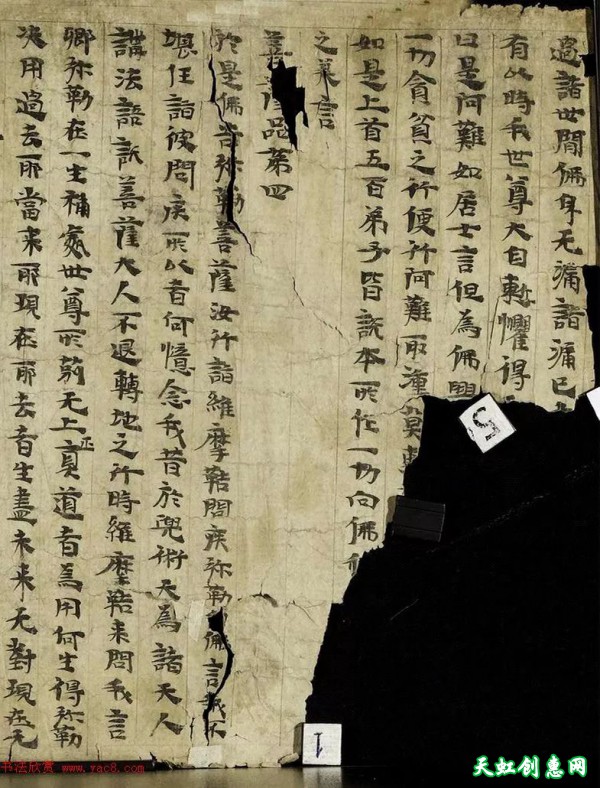 過諸世間佛身无漏諸漏已
有此時我世尊大自慚懼得
曰是阿難如居士言但為佛興
一切貪貧之行便行阿難取湩莫
如是上首五百弟子皆說本所作一切向佛
之慕言
菩薩品第四
於是佛告弥勒菩薩汝行詣維摩鞊問疾弥勒白佛言我不
堪任詣彼問疾所以者何憶念我昔於兜術天為諸天人
講法語說菩薩大人不退轉地之行時維摩鞊来問我言
卿弥勒在一生補處世尊所莂无上正真道者為用何生得弥勒
决用過去耶當来耶現在耶去者生盡未来无對現在无
1
书法欣赏 www.yac8.com
天虹创惠网